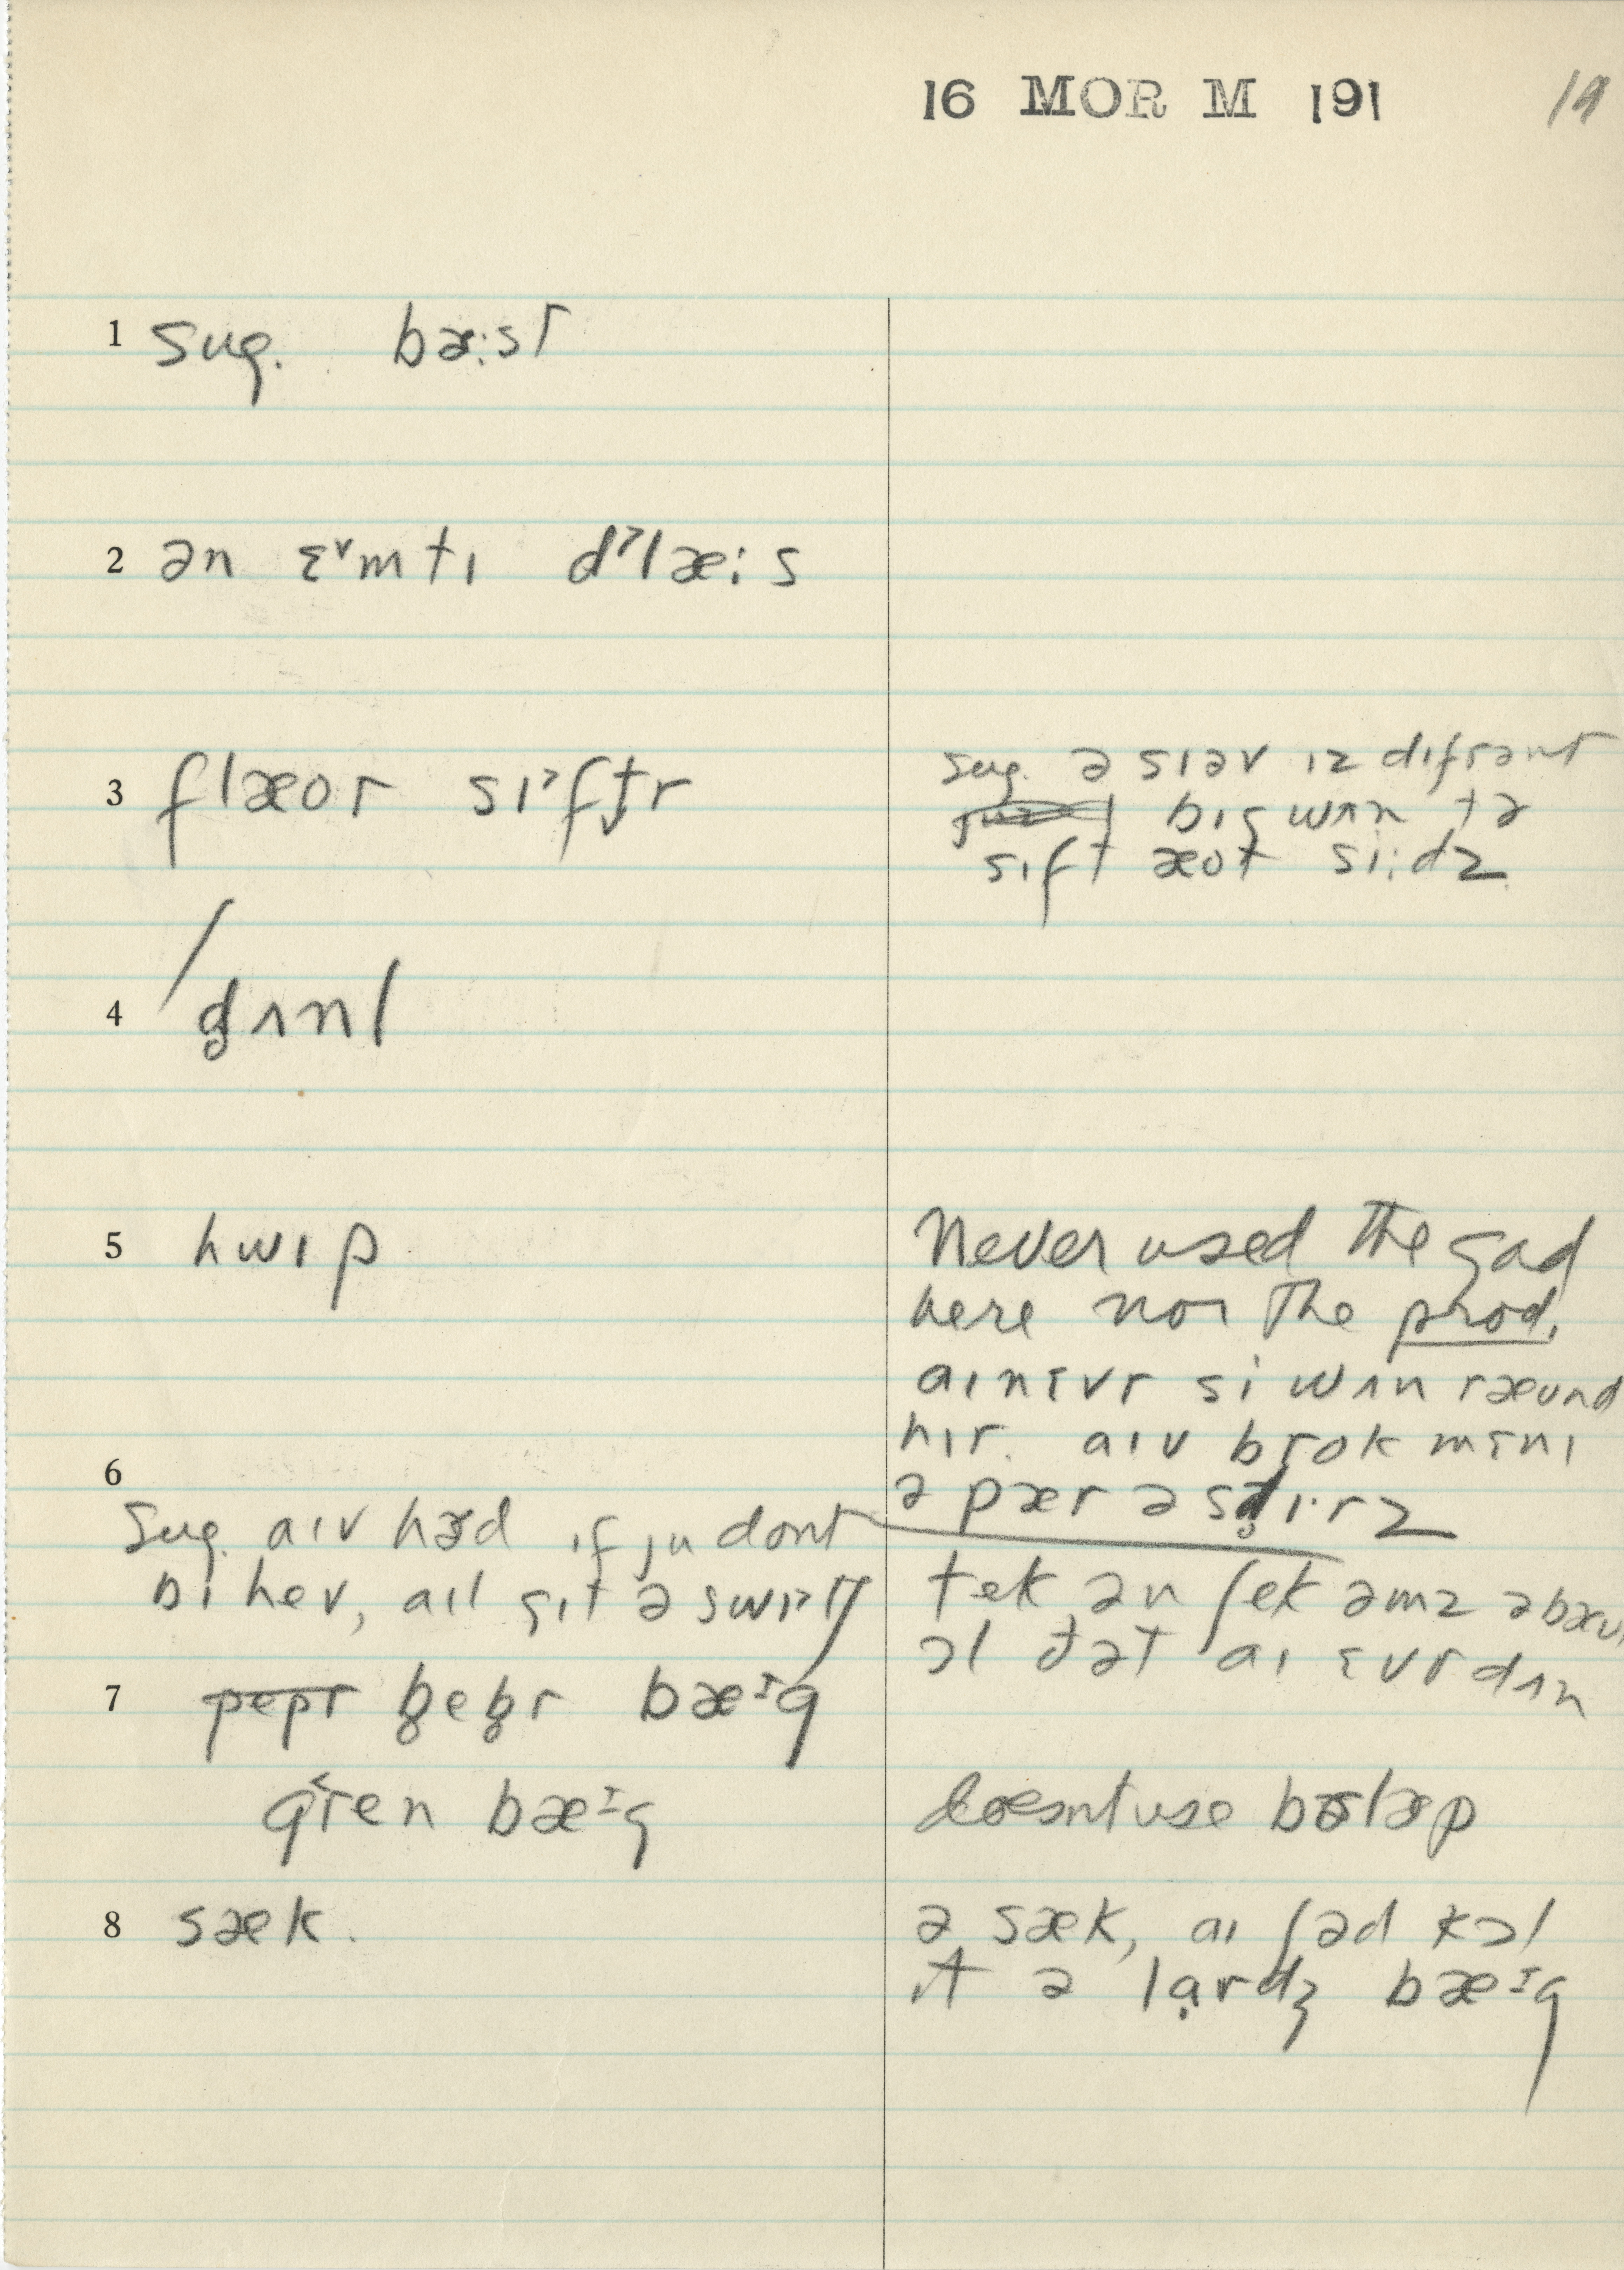 16 MOR M 191 19
1 Sug. bæ:st
2 ən ɛ˅mtɪ d˃læ:s
3 flæor sɪ˃ft̬r
sug. ə sɪəv ɪz dɪfrənt
bɪg wʌn tə
sɪft æot si:dz
4 / d̥ʌnl
5 hwɪp
Never used the gad
here nor the prod.
aɪ nɛvr si wʌn ræund
hɪr. aɪv brok mɛnɪ
6
ə pær ə sd̥ɪ·rz
Sug. aɪv hæd ɪf ju dont
bɪ hev, aɪl gɪt ə swɪ˃tʃ
tek ən ʃek əmz əbæu
ɔl ðət aɪ ɛvr dʌn
7 pepr b̥eb̥r bæᶦg
gr˂en bæᶦg
doesnt use bɜrlæp
8 sæk.
ə sæk, aɪ ʃəd kɔl
ɪt ə lạrdʒ bæᶦg